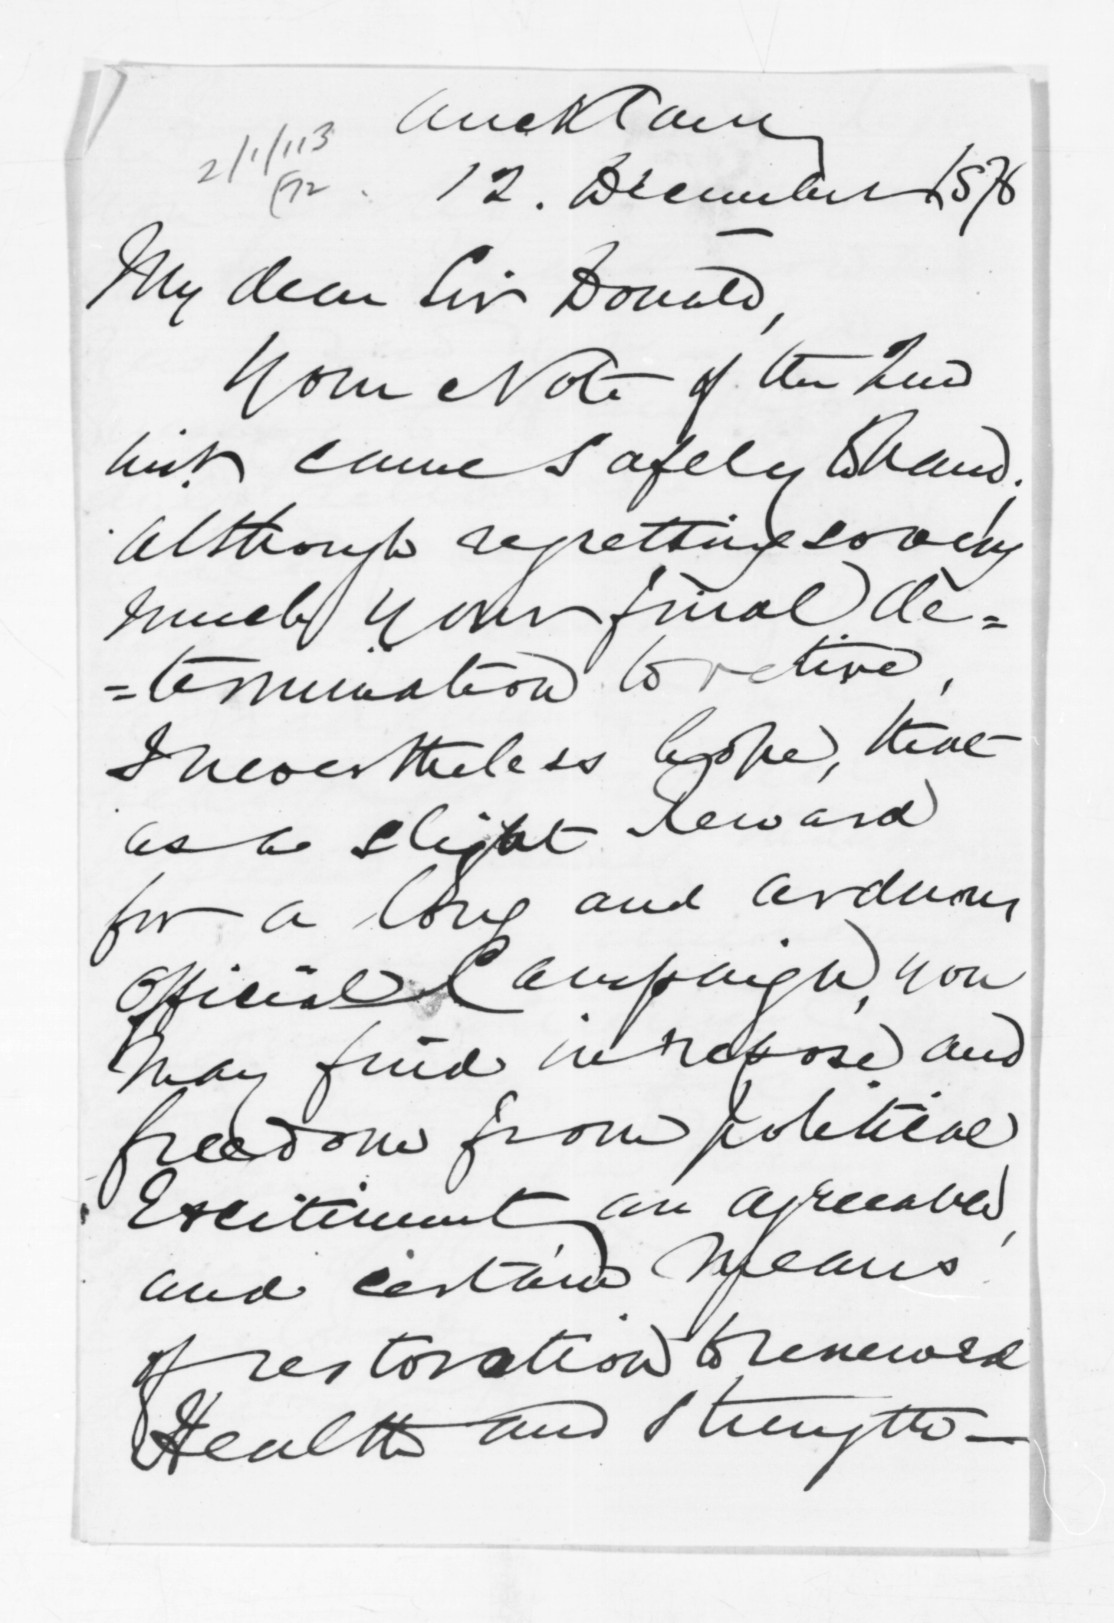 Auckland
2/1/113
/72
12. December 1876
My dear Sir Donald,
Your Note of the 2nd
inst. came safely to hand.
Although regretting so very
much your final de=
=termination to retire,
I nevertheless hope, that
as a slight Reward
for a long and arduous
official Campaign, you
may find in repose and
freedom from political
Excitement, an agreeable,
and certain means
of restoration to renewed
Health and Strength -